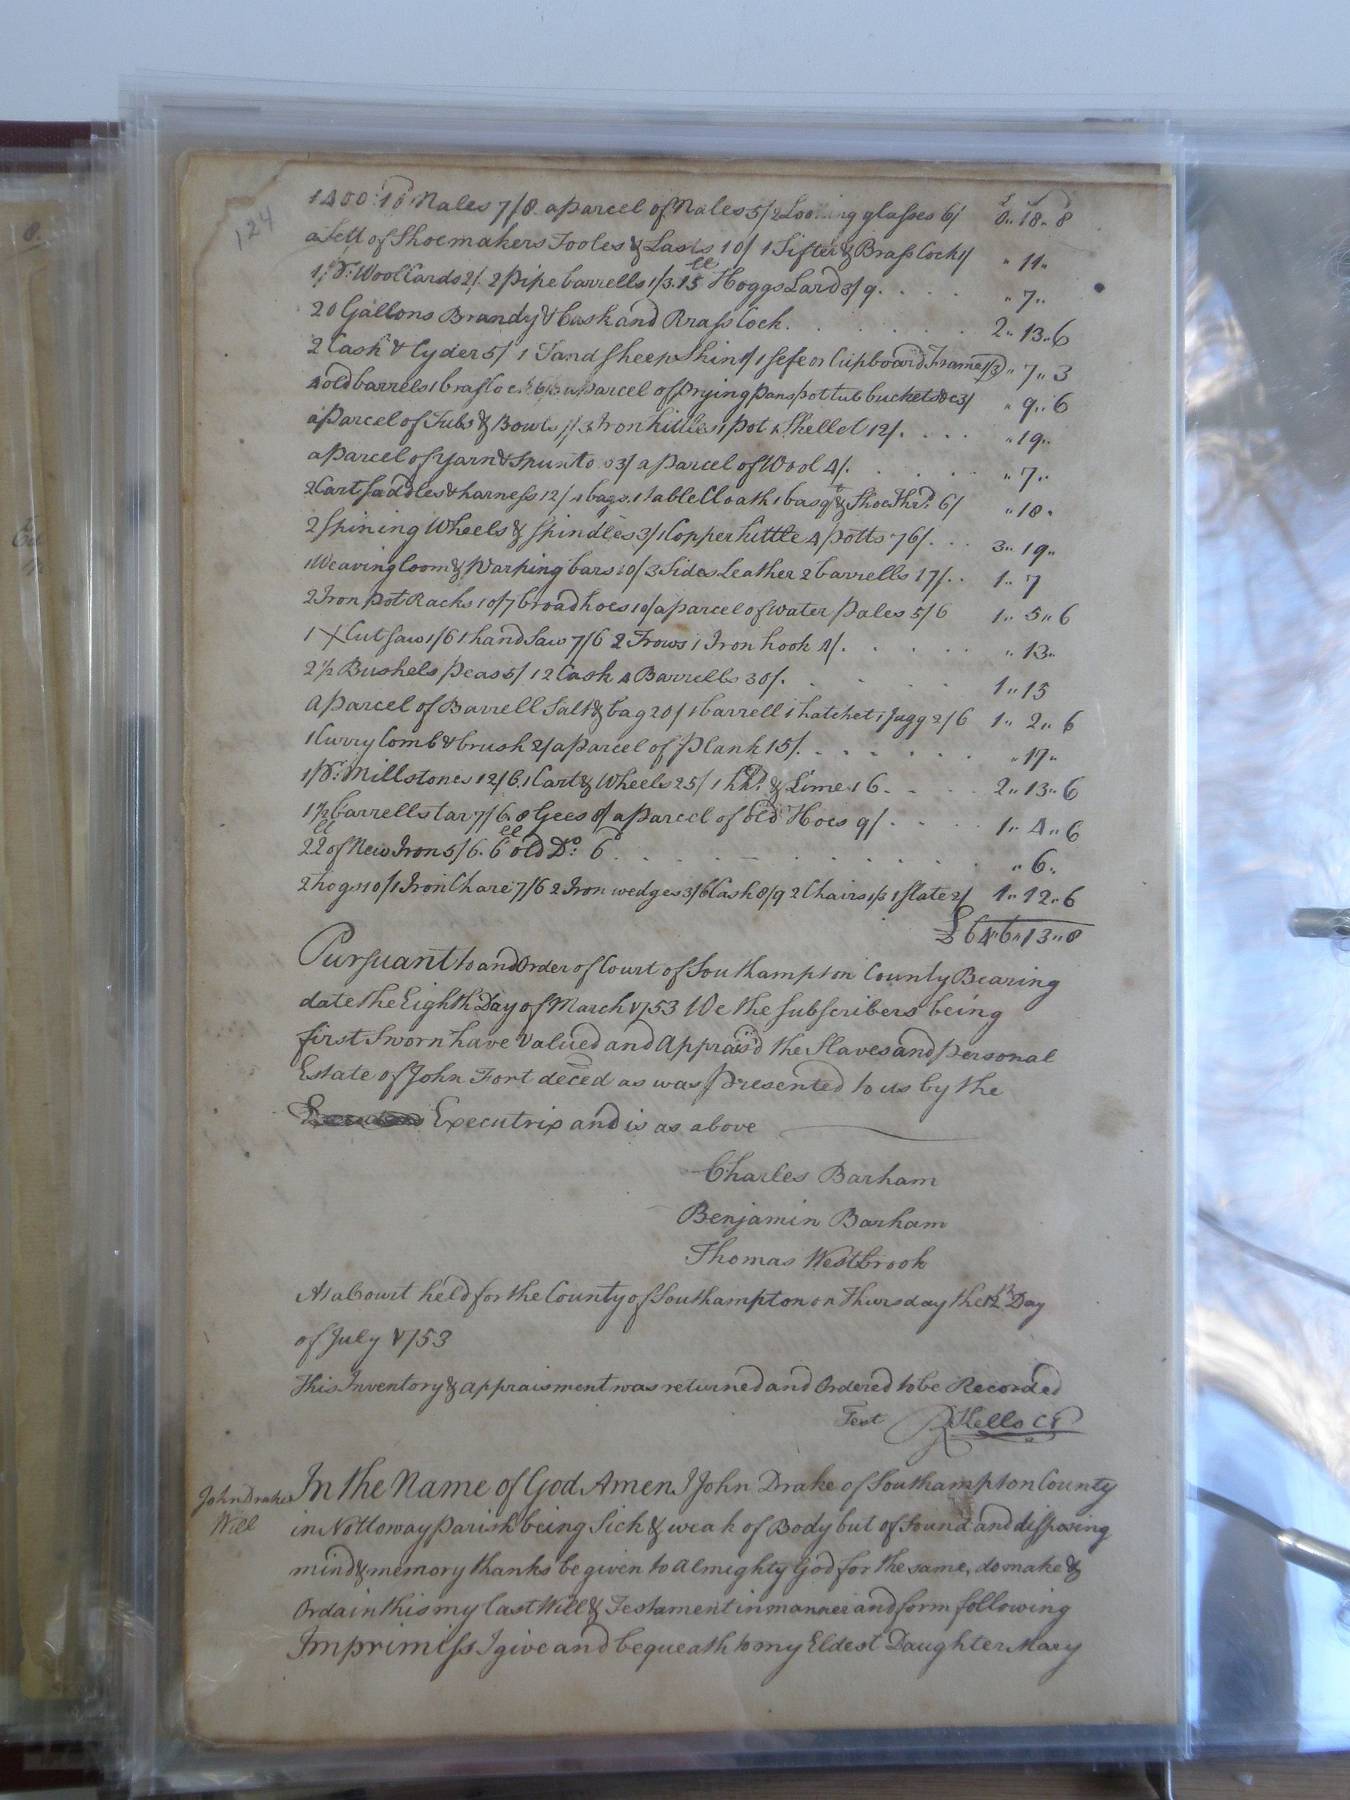 124
1400: 10d Nales 7/8 a parcel of Nales 5/ 2 Looking glasses 6/ £0.. 18.. 8
a Sett of Shoemakers Tooles & Lasts 10/ 1 Sifter & Brass Cock 1/ " 11..
1 pr. Wool Cards 2/. 2 pipe barrells 1/3. 15 ll Hoggs Lard 3/9. " 7..
20 Gallons Brandy & Cask and Brass Cock. 2.. 13.. 6
2 Cask & Cyder 5/ 1 Tand sheep Skin 1/ 1 sefe or Cupboard Frame 1/3 " 7.. 3
4 old barrels 1 brass parcel of frying pans pot tub buckets &c 3/ " 9.. 6
a Parcel of Tubs & Bowls 3 Iron kittles 1 pot & Skellet 12/. " 19..
a Parcel of Yarn & Spun 3/ a parcel of Wool 4/. " 7..
2 Cart saddles & harness 12/ 4 bags. 1 table Cloath 1 & Shoe Thrd. 6/ " 18"
2 Spining Wheels & Spindles 3/ 1 Copper kittle 4 potts 76/. 3.. 19..
1 Weaving loom & Warping bars 10/ 3 Sides Leather 2 barrells 17/.. 1.. 7
2 Iron pot Racks 10/ 7 broad hoes 10/ a parcel of water pales 5/6 1.. 5.. 6
1 X Cut saw 1/6 1 hand Saw 7/6 2 Frows 1 Iron hook 4/. " 13..
2 1/2 Bushels peas 5/ 12 Cask 4 Barrells 30/. 1.. 15
a parcel of Barrell Salt & bag 20/ 1 barrell 1 hatchet 1 Jugg 2/6 1.. 2.. 6
1 Curry Comb & brush 2/ a parcel of plank 15/. " 17..
1 pr. Millstones 12/6. 1 Cart & Wheels 25/ 1 hhd. & Lime 16. 2.. 13.. 6
1 1/2 barrells tar 7/6. 8 Gees 8/ a parcel of old Hoes 9/. 1.. 4.. 6
22 ll of New Iron 5/6. 6 ll old Do. 6d. " 6..
2 hogs 10/ 1 Iron Chare 7/6 2 Iron wedges 3/6 Cask 8/9 2 Chairs 1/3 1 slate 2/ 1.. 12.. 6
£646.. 13.. 8
Pursuant to and Order of Court of Southampton County Bearing
date the Eighth Day of March 1753 We the subscribers being
first Sworn have Valued and Appraisd the Slaves and personal
Estate of John Fort deced as was presented to us by the
Executrix and is as above
Charles Barham
Benjamin Barham
Thomas Westbrook
At a Court held for the County of Southampton on Thursday the 12th Day
of July 1753
This Inventory & appraisment was returned and Ordered to be Recorded
Test R Kello C C
John Drakes
Will
In the Name of God Amen I John Drake of Southampton County
in Nottoway parish being Sick & weak of Body but of sound and disposing
mind & memory thanks be given to almighty God for the same, do make &
Ordain this my last Will & Testament in manner and form following
Imprimiss I give and bequeath to my Eldest Daughter Mary